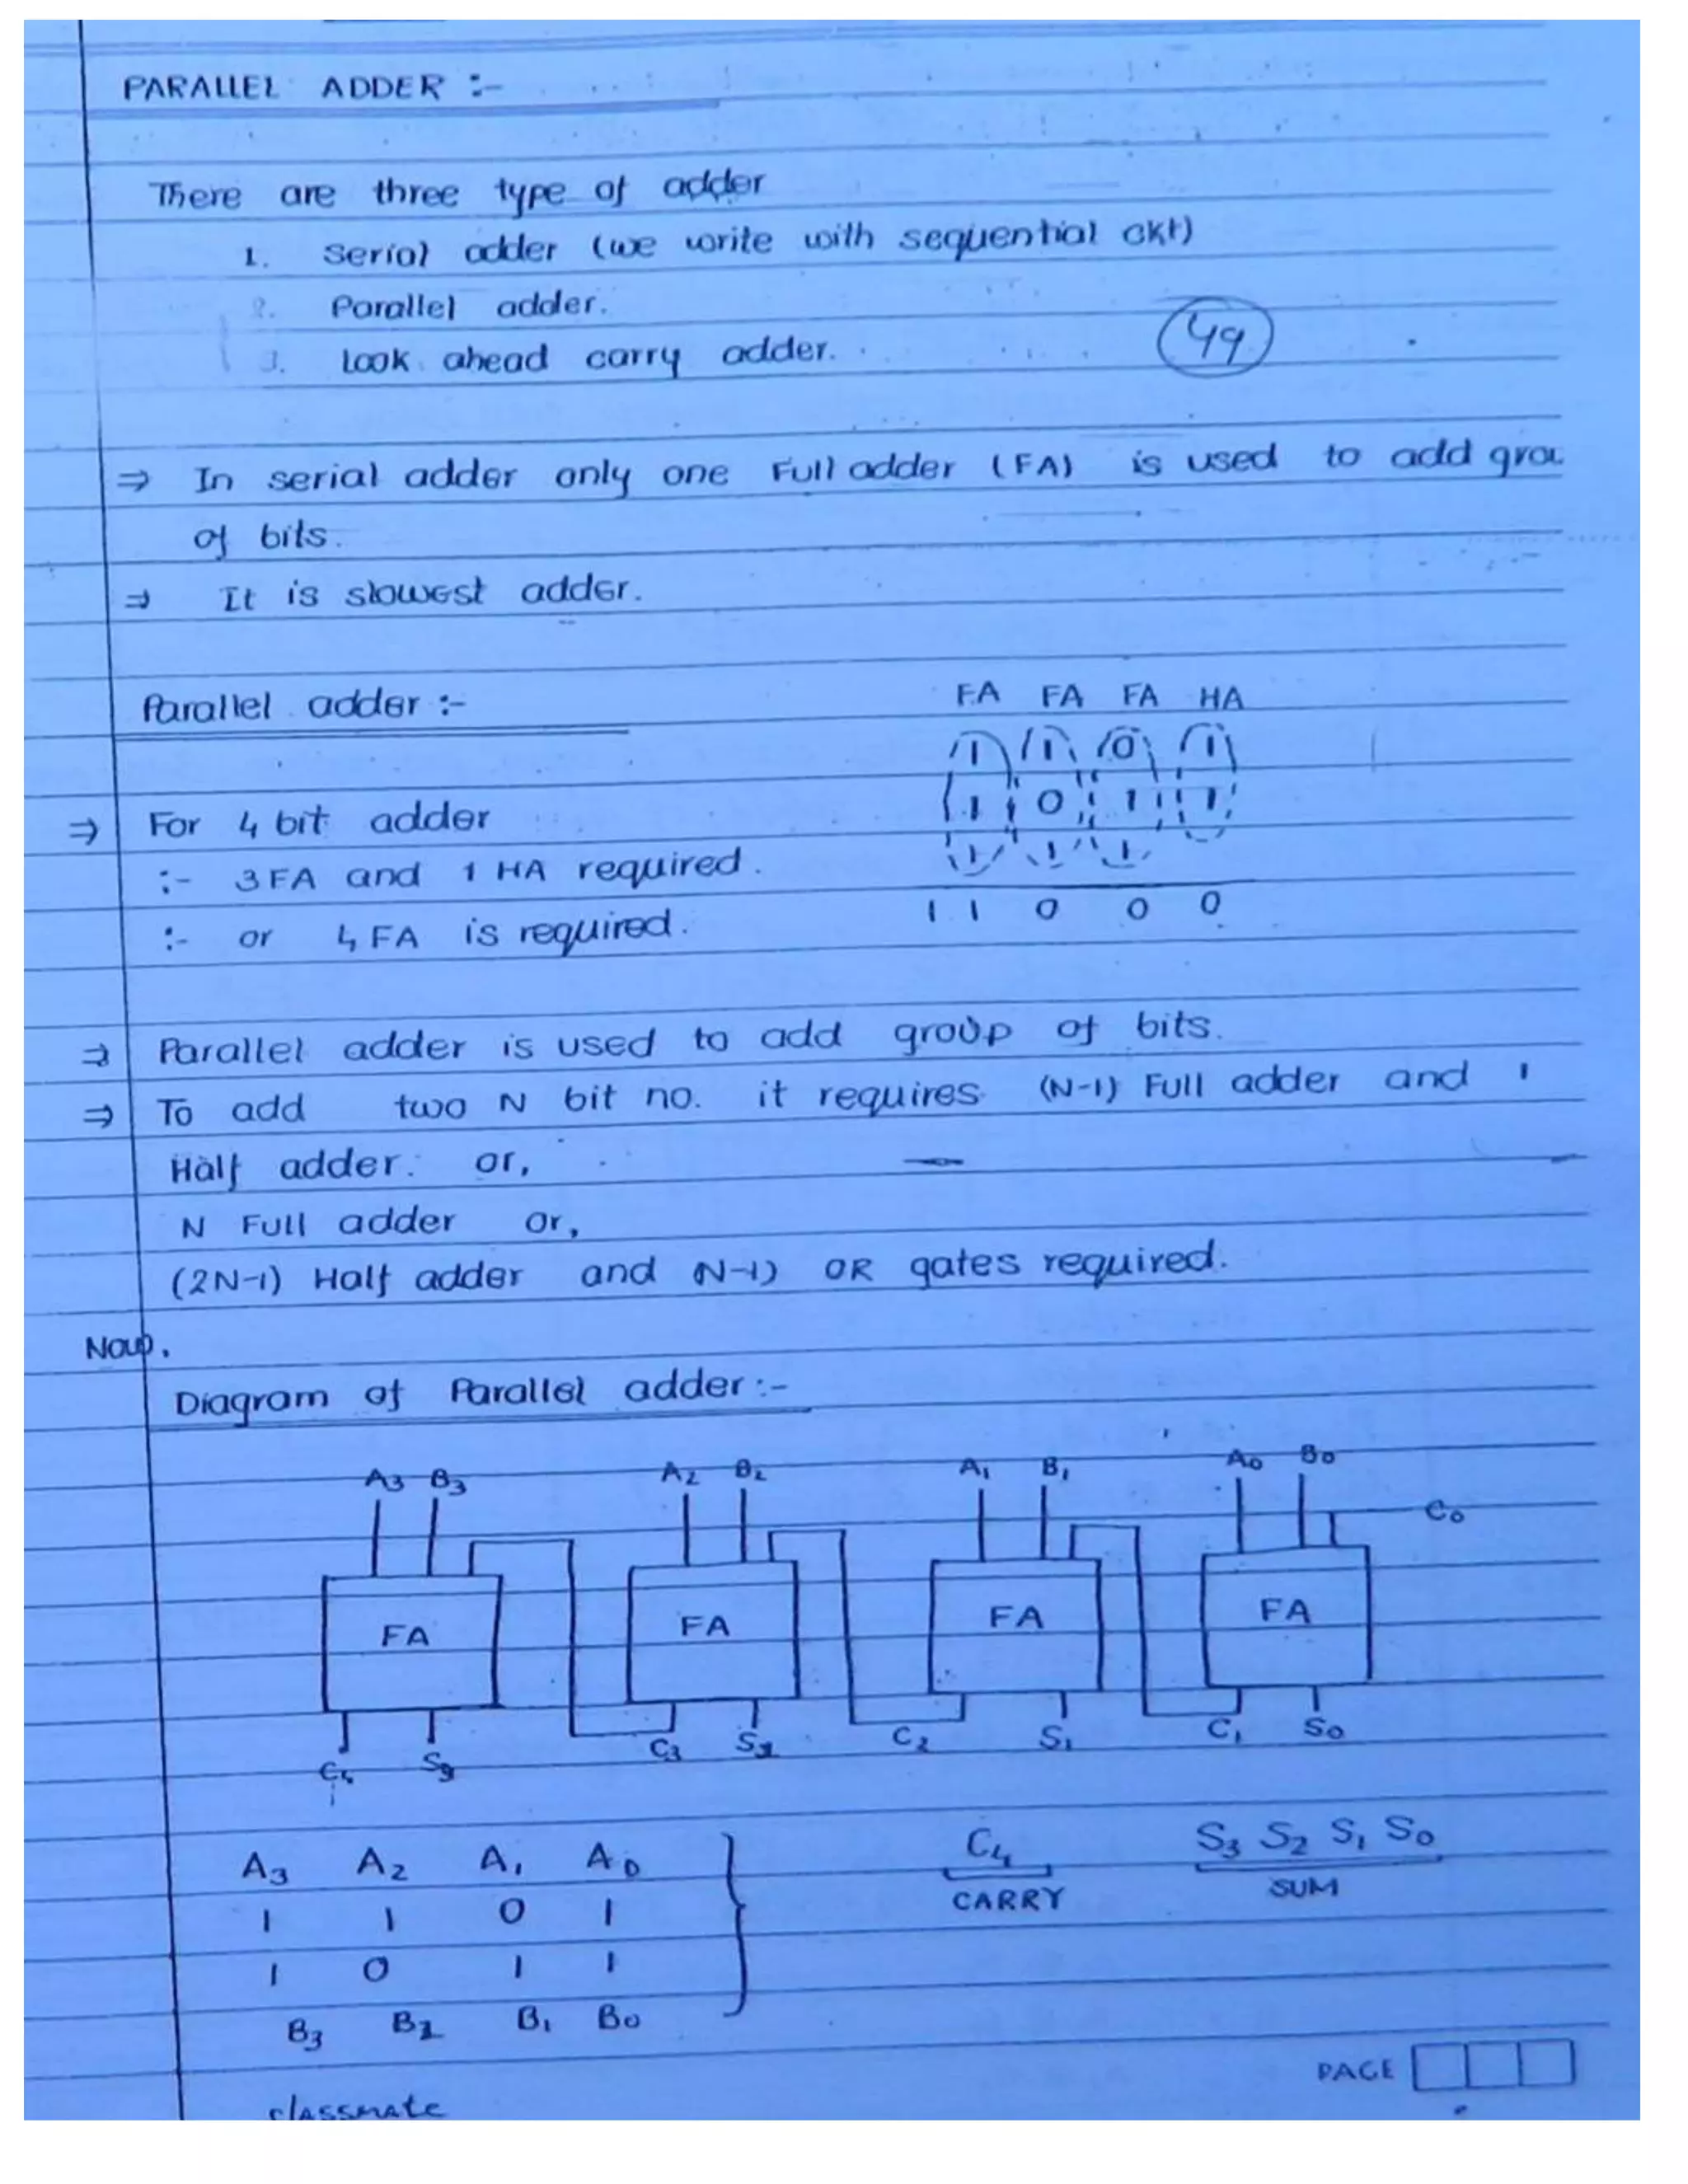 PARALLEL ADDER :-
There are three type of adder
1. Serial adder (we write with sequential ckt)
2. Parallel adder.
3. Look ahead carry adder.
49
⇒ In serial adder only one Full adder (FA) is used to add grou
of bits.
⇒ It is slowest adder.
Parallel adder :-
FA FA FA HA
1 1 0 1
1 0 1 1
1 1 1
1 1 0 0 0
⇒ For 4 bit adder
:- 3 FA and 1 HA required.
:- or 4 FA is required.
⇒ Parallel adder is used to add group of bits.
⇒ To add two N bit no. it requires (N-1) Full adder and 1
Half adder. or,
N Full adder or,
(2N-1) Half adder and (N-1) OR gates required.
Now,
Diagram of Parallel adder :-
A3 B3 A2 B2 A1 B1 A0 B0
C0
FA FA FA FA
C4 S3 C3 S2 C2 S1 C1 S0
A3 A2 A1 A0
1 1 0 1
1 0 1 1
B3 B2 B1 B0
C4 S3 S2 S1 S0
CARRY SUM
PAGE
classmate